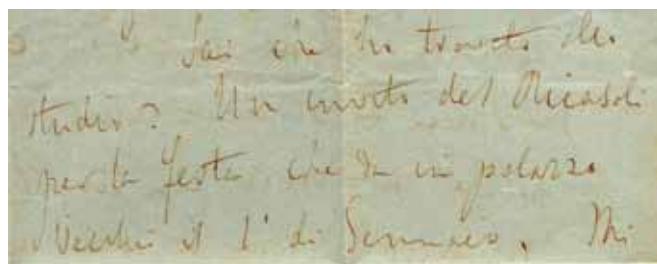 Sai che ho trovato allo
studio? Un invito del Ricasoli
per la festa che dà in palazzo
Vecchio il 1° di Gennaio. Mi